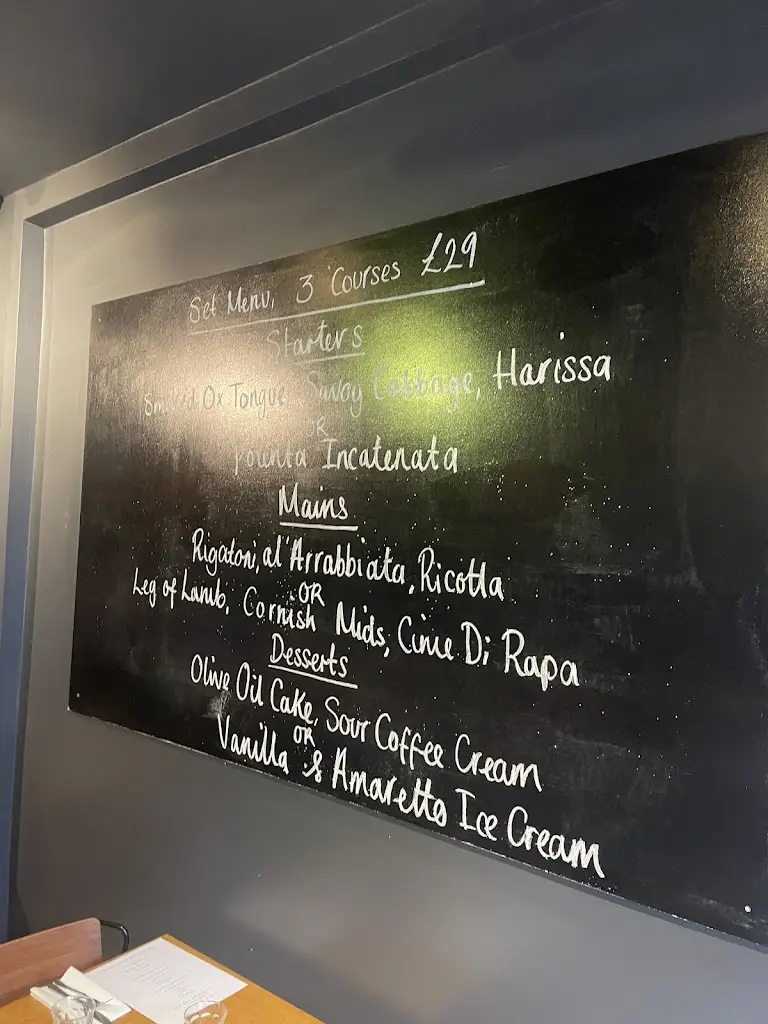 Set Menu, 3 Courses £29
Starters
Smoked Ox Tongue, Savoy Cabbage, Harissa
OR
Polenta Incatenata
Mains
Rigatoni, al'Arrabbiata, Ricotta
OR
Leg of Lamb, Cornish Mids, Cime Di Rapa
Desserts
Olive Oil Cake, Sour Coffee Cream
OR
Vanilla & Amaretto Ice Cream